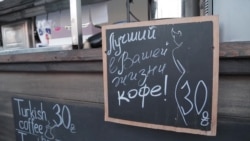 Лучший
в Вашей
жизни
кофе!
30
Turkish 30
coffee